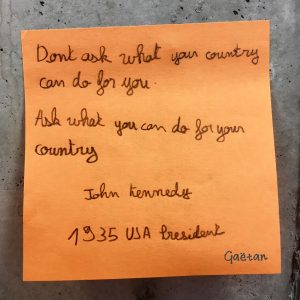 Dont ask what your country
can do for you.
Ask what you can do for your
country
John Kennedy
1935 USA President
Gaëtan